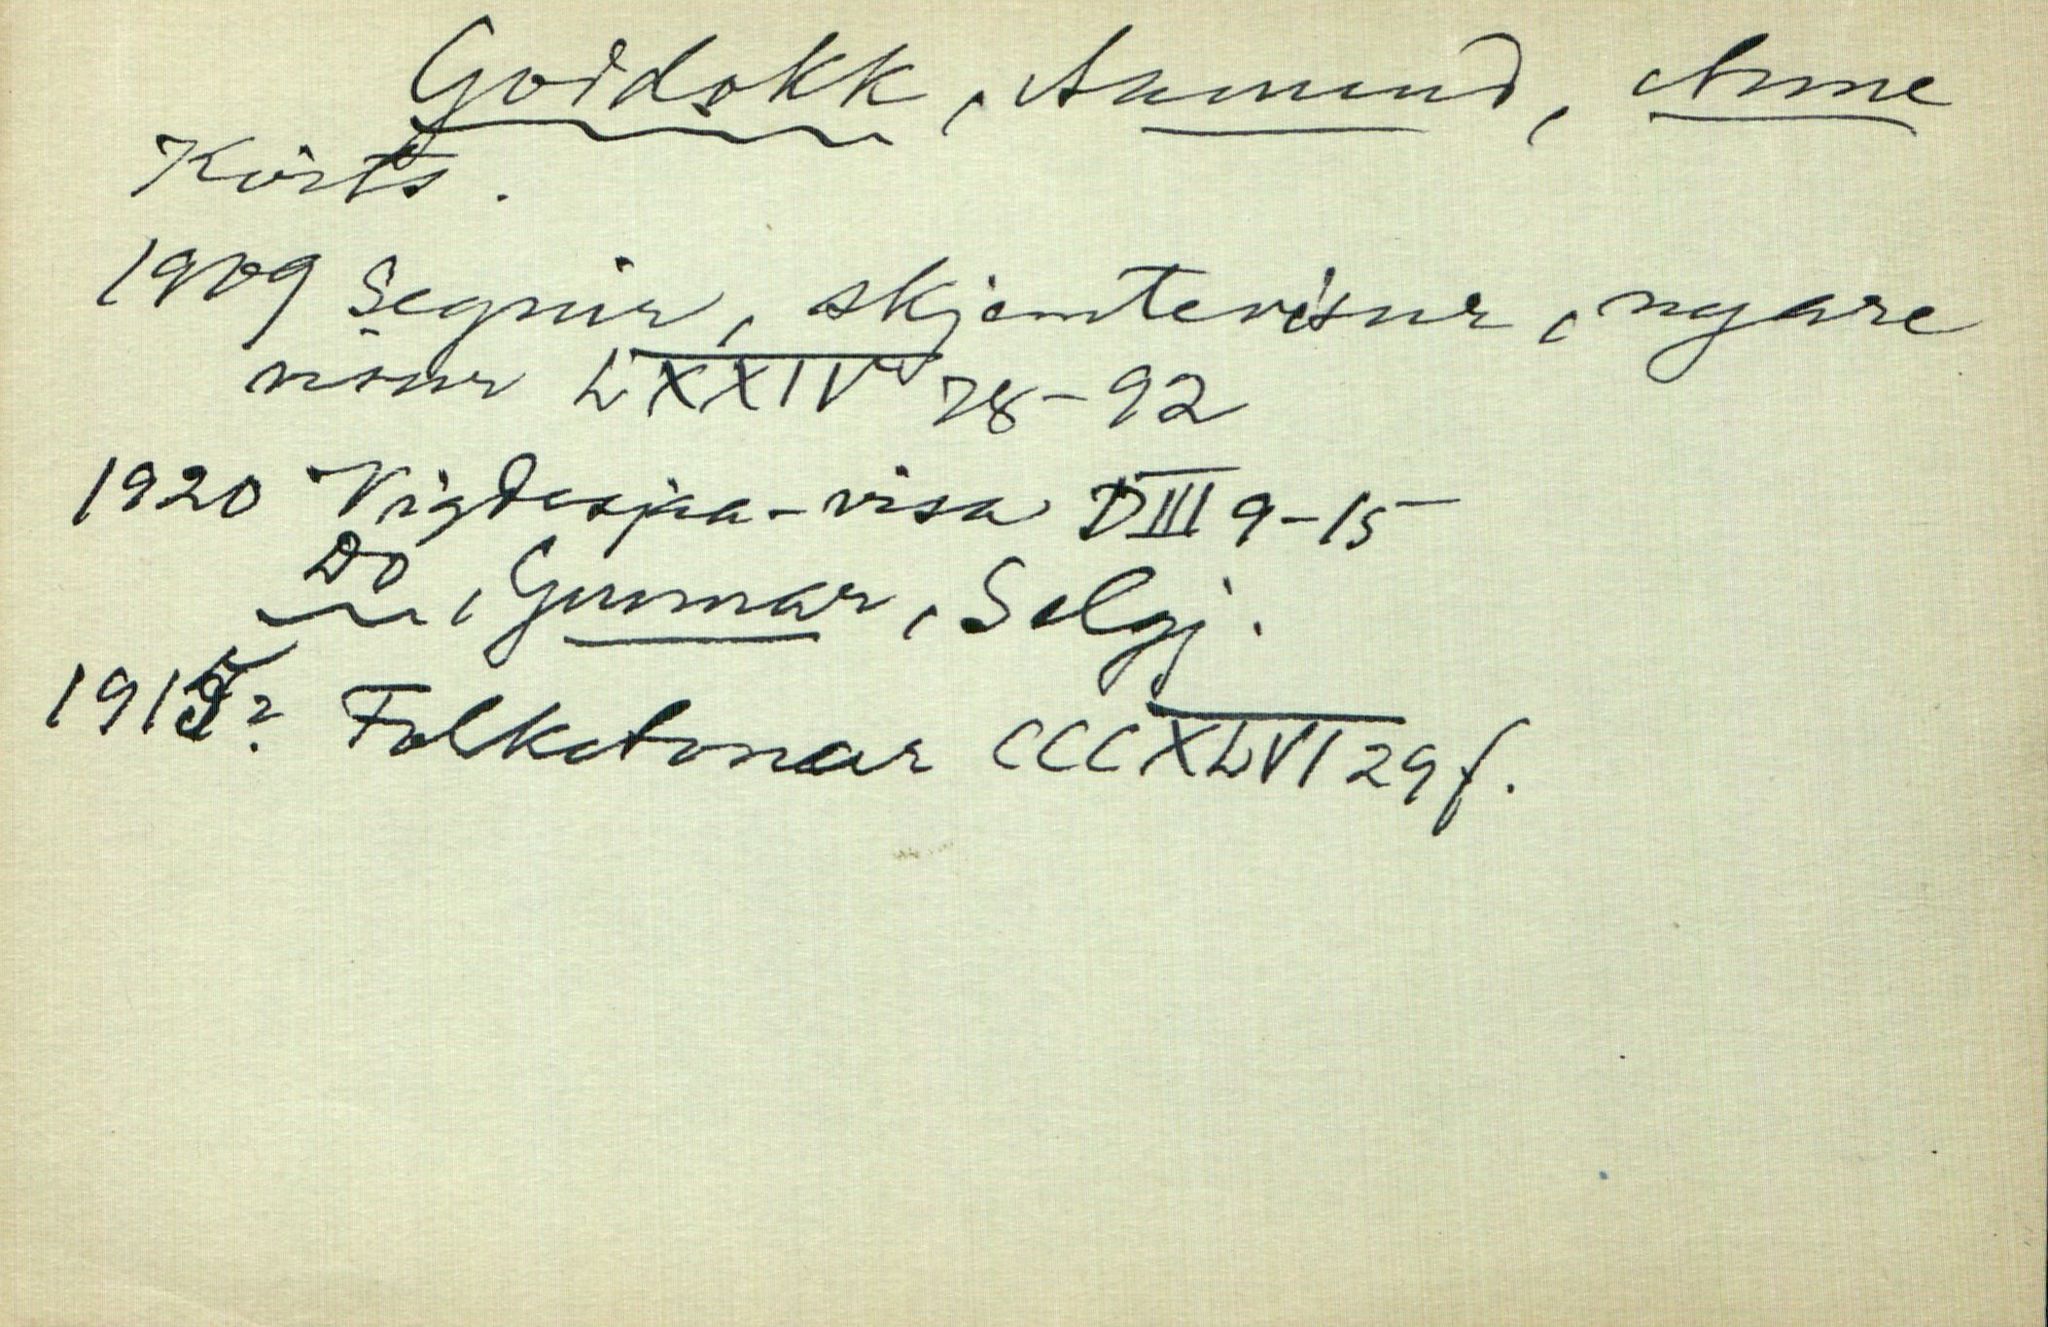 Goddokk, Aamund, Anne
Kvits.
1909 Segnir, skjemtevisur, nyare
visur LXXIV 78-92
1920 Vigdesjaa-visa DIII 9-15
Do, Gunnar, Selgj.
1915? Folketonar CCCXLVI 29 f.